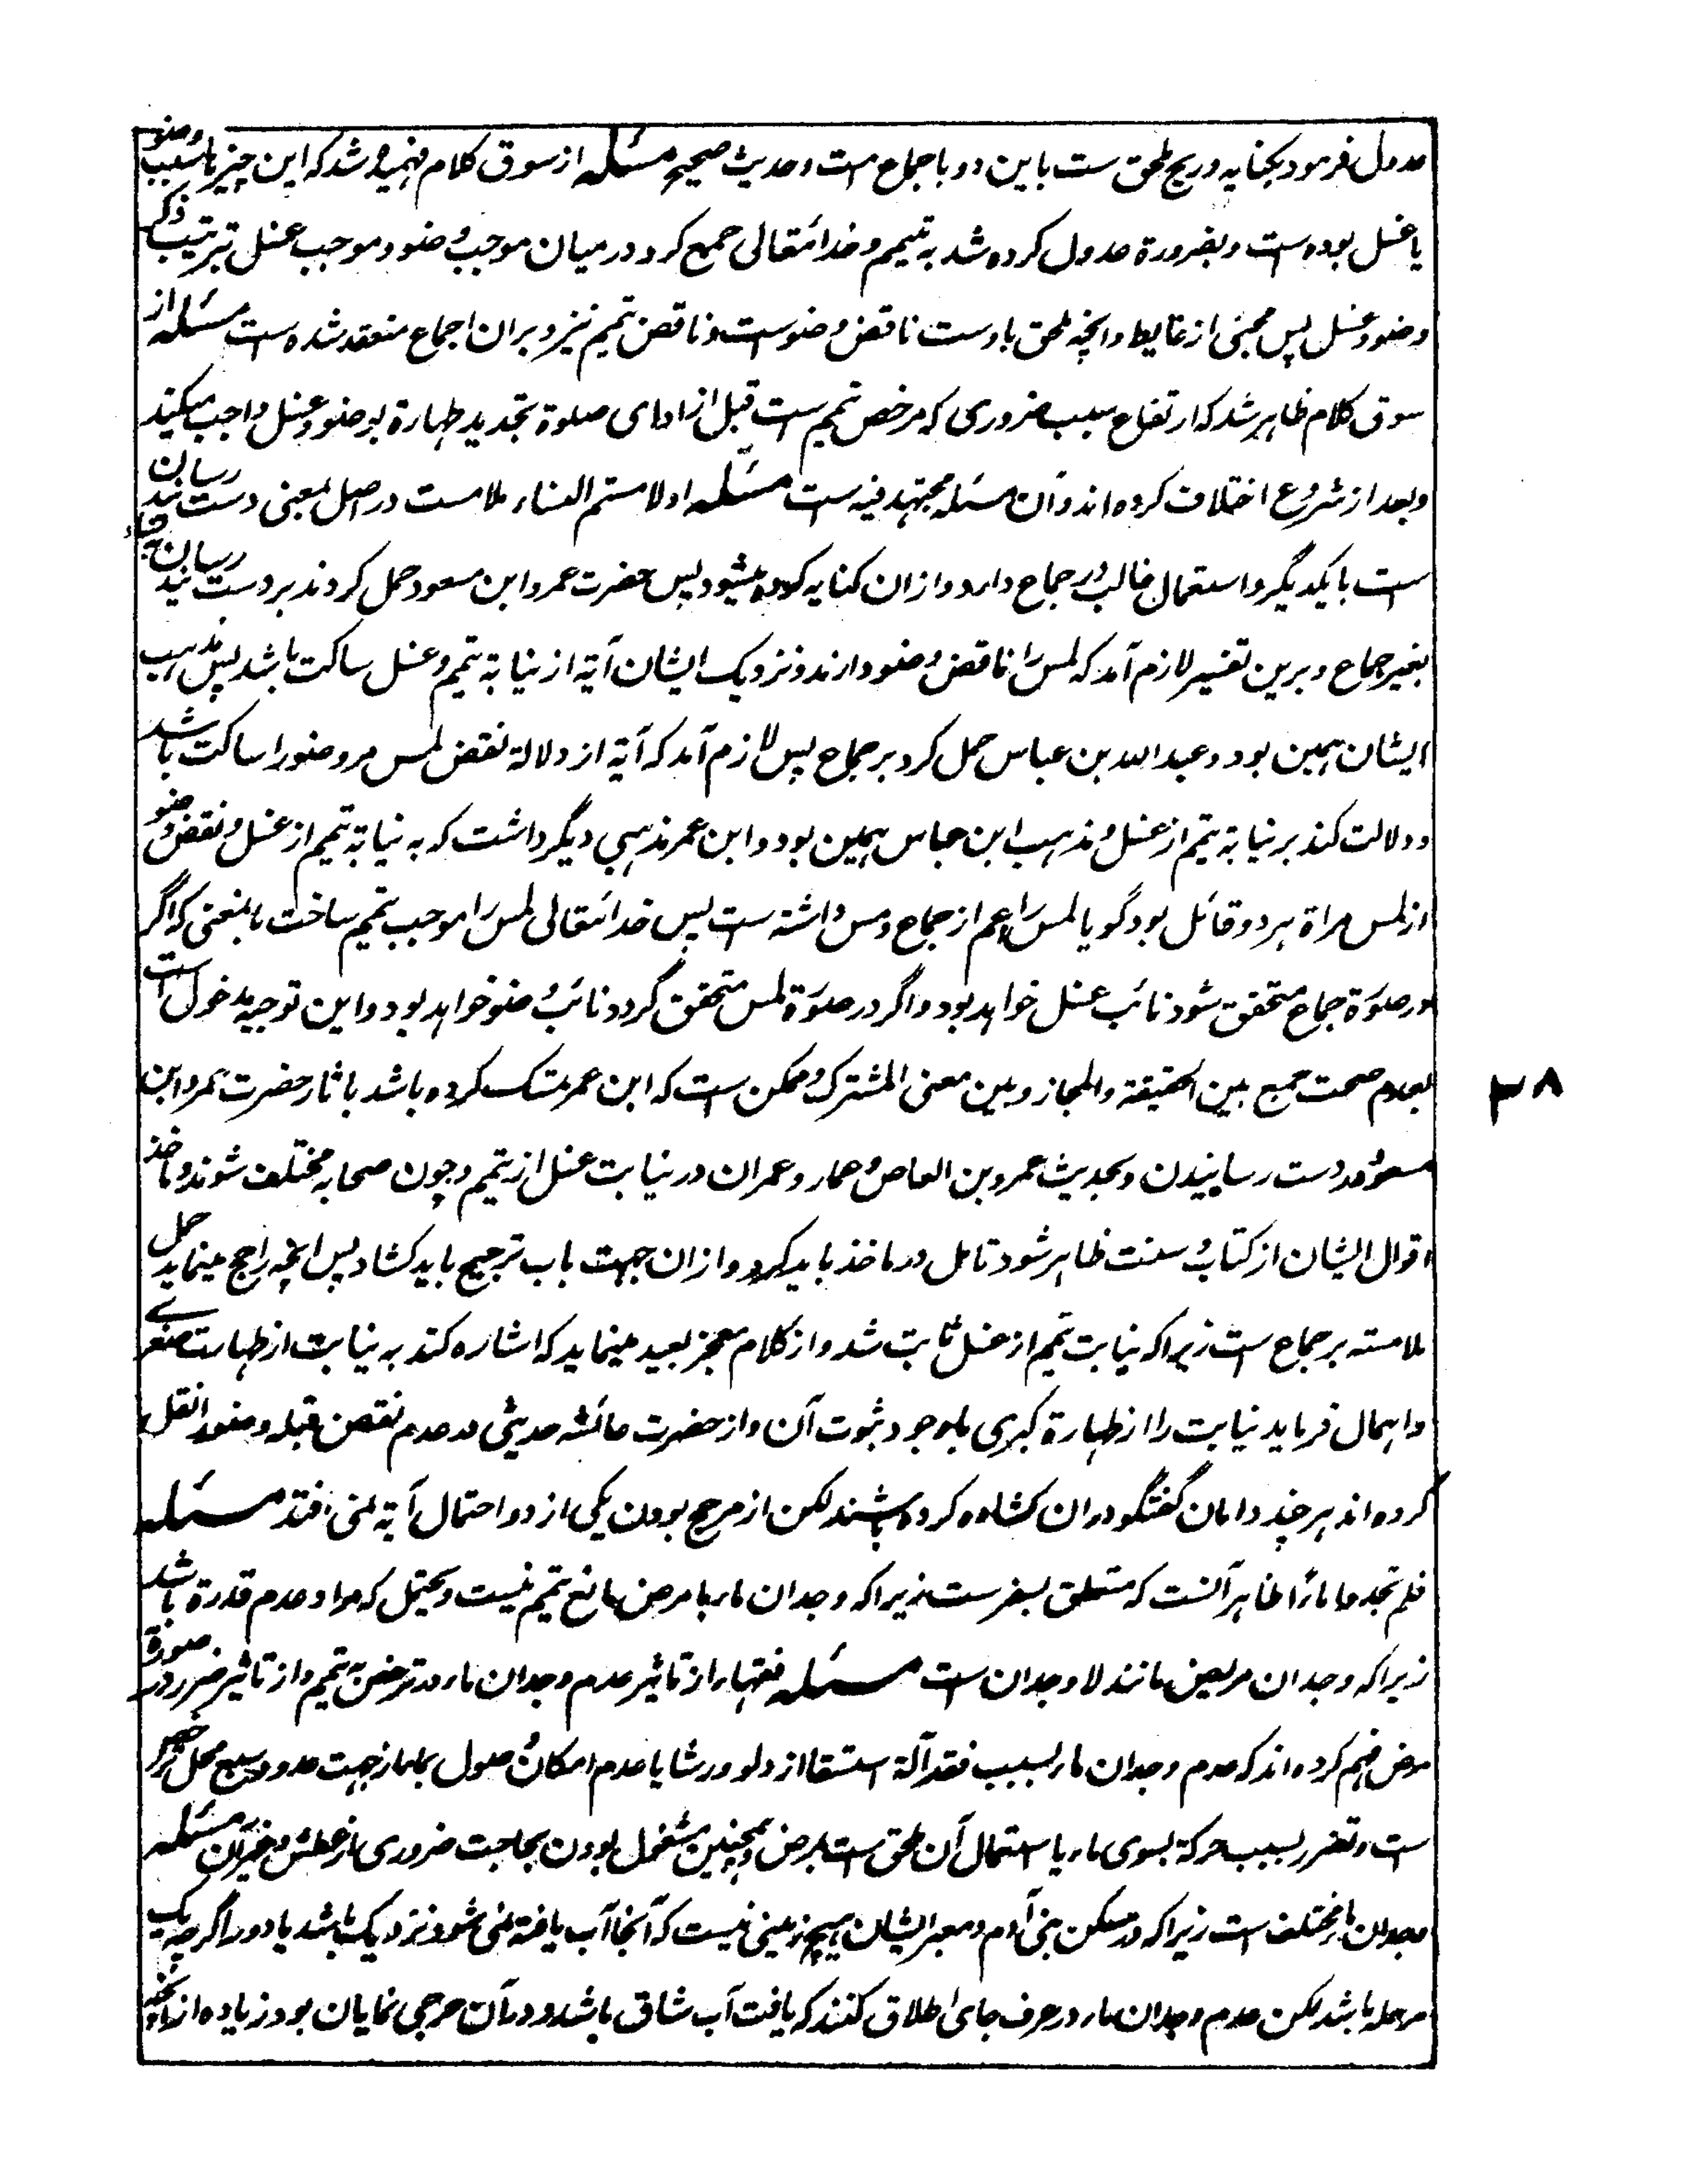 عدول فرمود بکنایه و ریح ملحق ست باین دو باجماع امت و حدیث صحیح مسئله از سوق کلام فهمیده شد که این چیزها سبب وضو
یا غسل بوده ست و بضرورة عدول کرده شد به تیمم و خدائتعالی جمع کرد در میان موجب وضو و موجب غسل بترتیب ذکر
وضو و غسل پس مجیٔ از غایط و انچه ملحق باوست ناقض وضوست و ناقض تیمم نیز و بران اجماع منعقد شده ست مسئله از
سوق کلام ظاهر شد که ارتفاع سبب ضروری که مرخص تیمم ست قبل از ادای صلوة تجدید طهارة بوضو و غسل واجب میکند
و بعد از شروع اختلاف کرده اند و آن مسئله مجتهد فیه ست مسئله او لامستم النساء ملامست در اصل بمعنی دست رسانیدن
ست با یکدیگر و استعمال غالب در جماع دارد و ازان کنایه کرده میشود پس حضرت عمر و ابن مسعود حمل کردند بر دست رسانیدن
بغیر جماع و برین تفسیر لازم آمد که لمس را ناقض وضو دارند و نزدیک ایشان آیة از نیابة تیمم و غسل ساکت باشد پس مذهب
ایشان همین بود و عبد الله بن عباس حمل کرد بر جماع پس لازم آمد که آیة از دلالة نقض لمس مر وضو را ساکت باشد
و دلالت کند بر نیابة تیمم از غسل و مذهب ابن عباس همین بود و ابن عمر مذهبی دیگر داشت که به نیابة تیمم از غسل و نقض وضو
از لمس مراة هر دو قائل بود گویا لمس را اعم از جماع و مس داشته ست پس خدائتعالی لمس را موجب تیمم ساخت بمعنی که اگر
در صورة جماع متحقق شود نائب غسل خواهد بود و اگر در صورة لمس متحقق گردد نائب وضو خواهد بود و این توجیه مدخول است
بعدم صحت جمع بین الحقیقة والمجاز و بین معنی المشترک و ممکن ست که ابن عمر متمسک کرده باشد باثار حضرت عمر و ابن
مسعود در دست رسانیدن و بحدیث عمرو بن العاص و عمار و عمران در نیابت غسل از تیمم و چون صحابه مختلف شوند و ماخذ
اقوال ایشان از کتاب و سنت ظاهر شود تامل در ماخذ باید کرد و ازان جهت باب ترجیح باید کشاد پس انچه راجح مینماید حمل
ملامسته بر جماع ست زیرا که نیابت تیمم از غسل ثابت شد و از کلام معجز بعید مینماید که اشاره کند به نیابت از طهارت صغری
و اهمال فرماید نیابت را از طهارة کبری باوجود ثبوت آن و از حضرت عائشه حدیثی در عدم نقض قبله وضو را نقل
کرده اند هر چند دامان گفتگو دران کشاده کرده باشند لکن از مرجح بودن یکی از دو احتمال آیة نمی افتد مسئله
فلم تجدوا ماءً ظاهر آنست که متعلق بسفرست زیرا که وجدان ماء با مرض مانع تیمم نیست و یحتمل که مراد عدم قدرة باشد
زیرا که وجدان مریض مانند لا وجدان ست مسئله فقهاء از تاثیر عدم وجدان ماء در ترخص به تیمم و از تاثیر ضرر در صورة
مرض فهم کرده اند که عدم وجدان ماء بسبب فقد آلة استسقا از دلو و رشا یا عدم امکان وصول بماء از جهت عدو و سبع محل ترخص
ست و تضرر بسبب حرکة بسوی ماء یا استعمال آن ملحق ست بمرض و همچنین مشغول بودن بحاجت ضروری از عطش و غیر آن مسئله
وجدان ماء مختلف ست زیرا که در مسکن بنی آدم و معبر ایشان هیچ زمینی نیست که آنجا آب یافته نمی شود نزدیک باشد یا دور اگرچه یک
مرحله باشد لکن عدم وجدان ماء در عرف جای اطلاق کنند که یافت آب شاق باشد و دران حرجی نمایان بود زیاده از انچه
۳۸